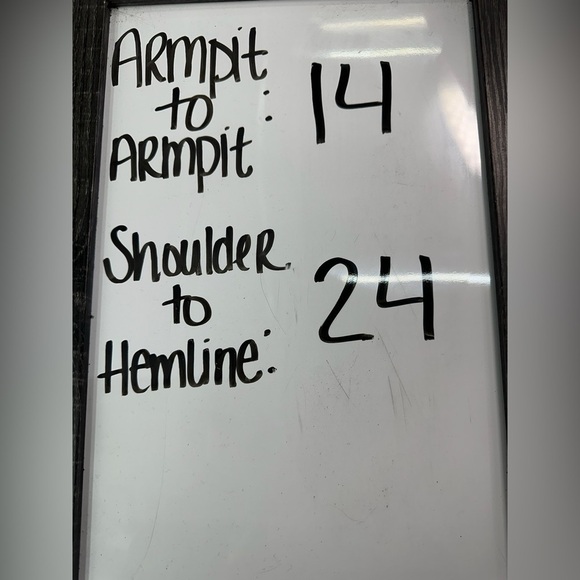 Armpit
to : 14
Armpit
Shoulder
to 24
Hemline: